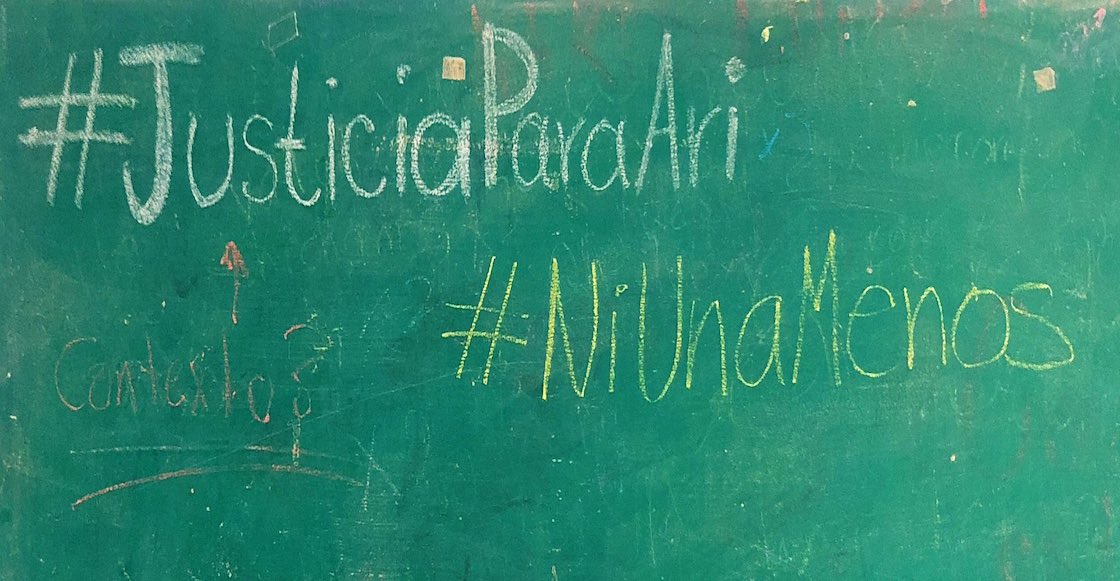 #JusticiaParaAri
#NiUnaMenos
Contexto?